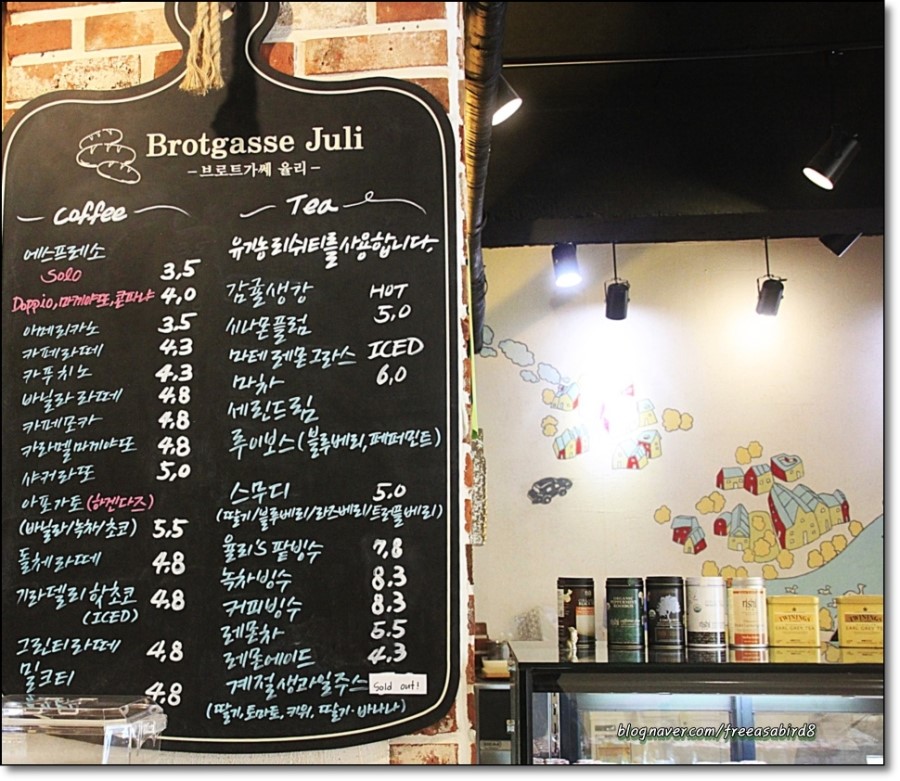 Brotgasse Juli
-브로트가쎄 율리-
Coffee
에스프레소
Solo 3,5
Doppio,마끼야또,콘파냐 4,0
아메리카노 3.5
카페라떼 4,3
카푸치노 4,3
바닐라라떼 4.8
카페모카 4.8
카라멜마끼야또 4,8
샤커라또 5,0
아포가토(하겐다즈)
(바닐라/녹차/초코) 5.5
돌체라떼 4.8
기라델리핫초코 4.8
(ICED)
그린티라떼 4,8
밀크티 4.8
Tea
유기농리쉬티를사용합니다.
감홀생강 HOT
시나몬플럼 5,0
마테레몬그라스 ICED
마차 6,0
세린드림
루이보스(블루베리,페퍼민트)
스무디 5.0
(딸기/블루베리/라즈베리/트러플베리)
율리's 팥빙수 7,8
녹차빙수 8.3
커피빙수 8.3
레몬차 5.5
레몬에이드 4.3
계절생과일주스 Sold out!
(딸기,토마토,키위,딸기·바나나)
TWININGS
EARL GREY TEA
TWININGS
EARL GREY TEA
blognaver.com/freeasabird8